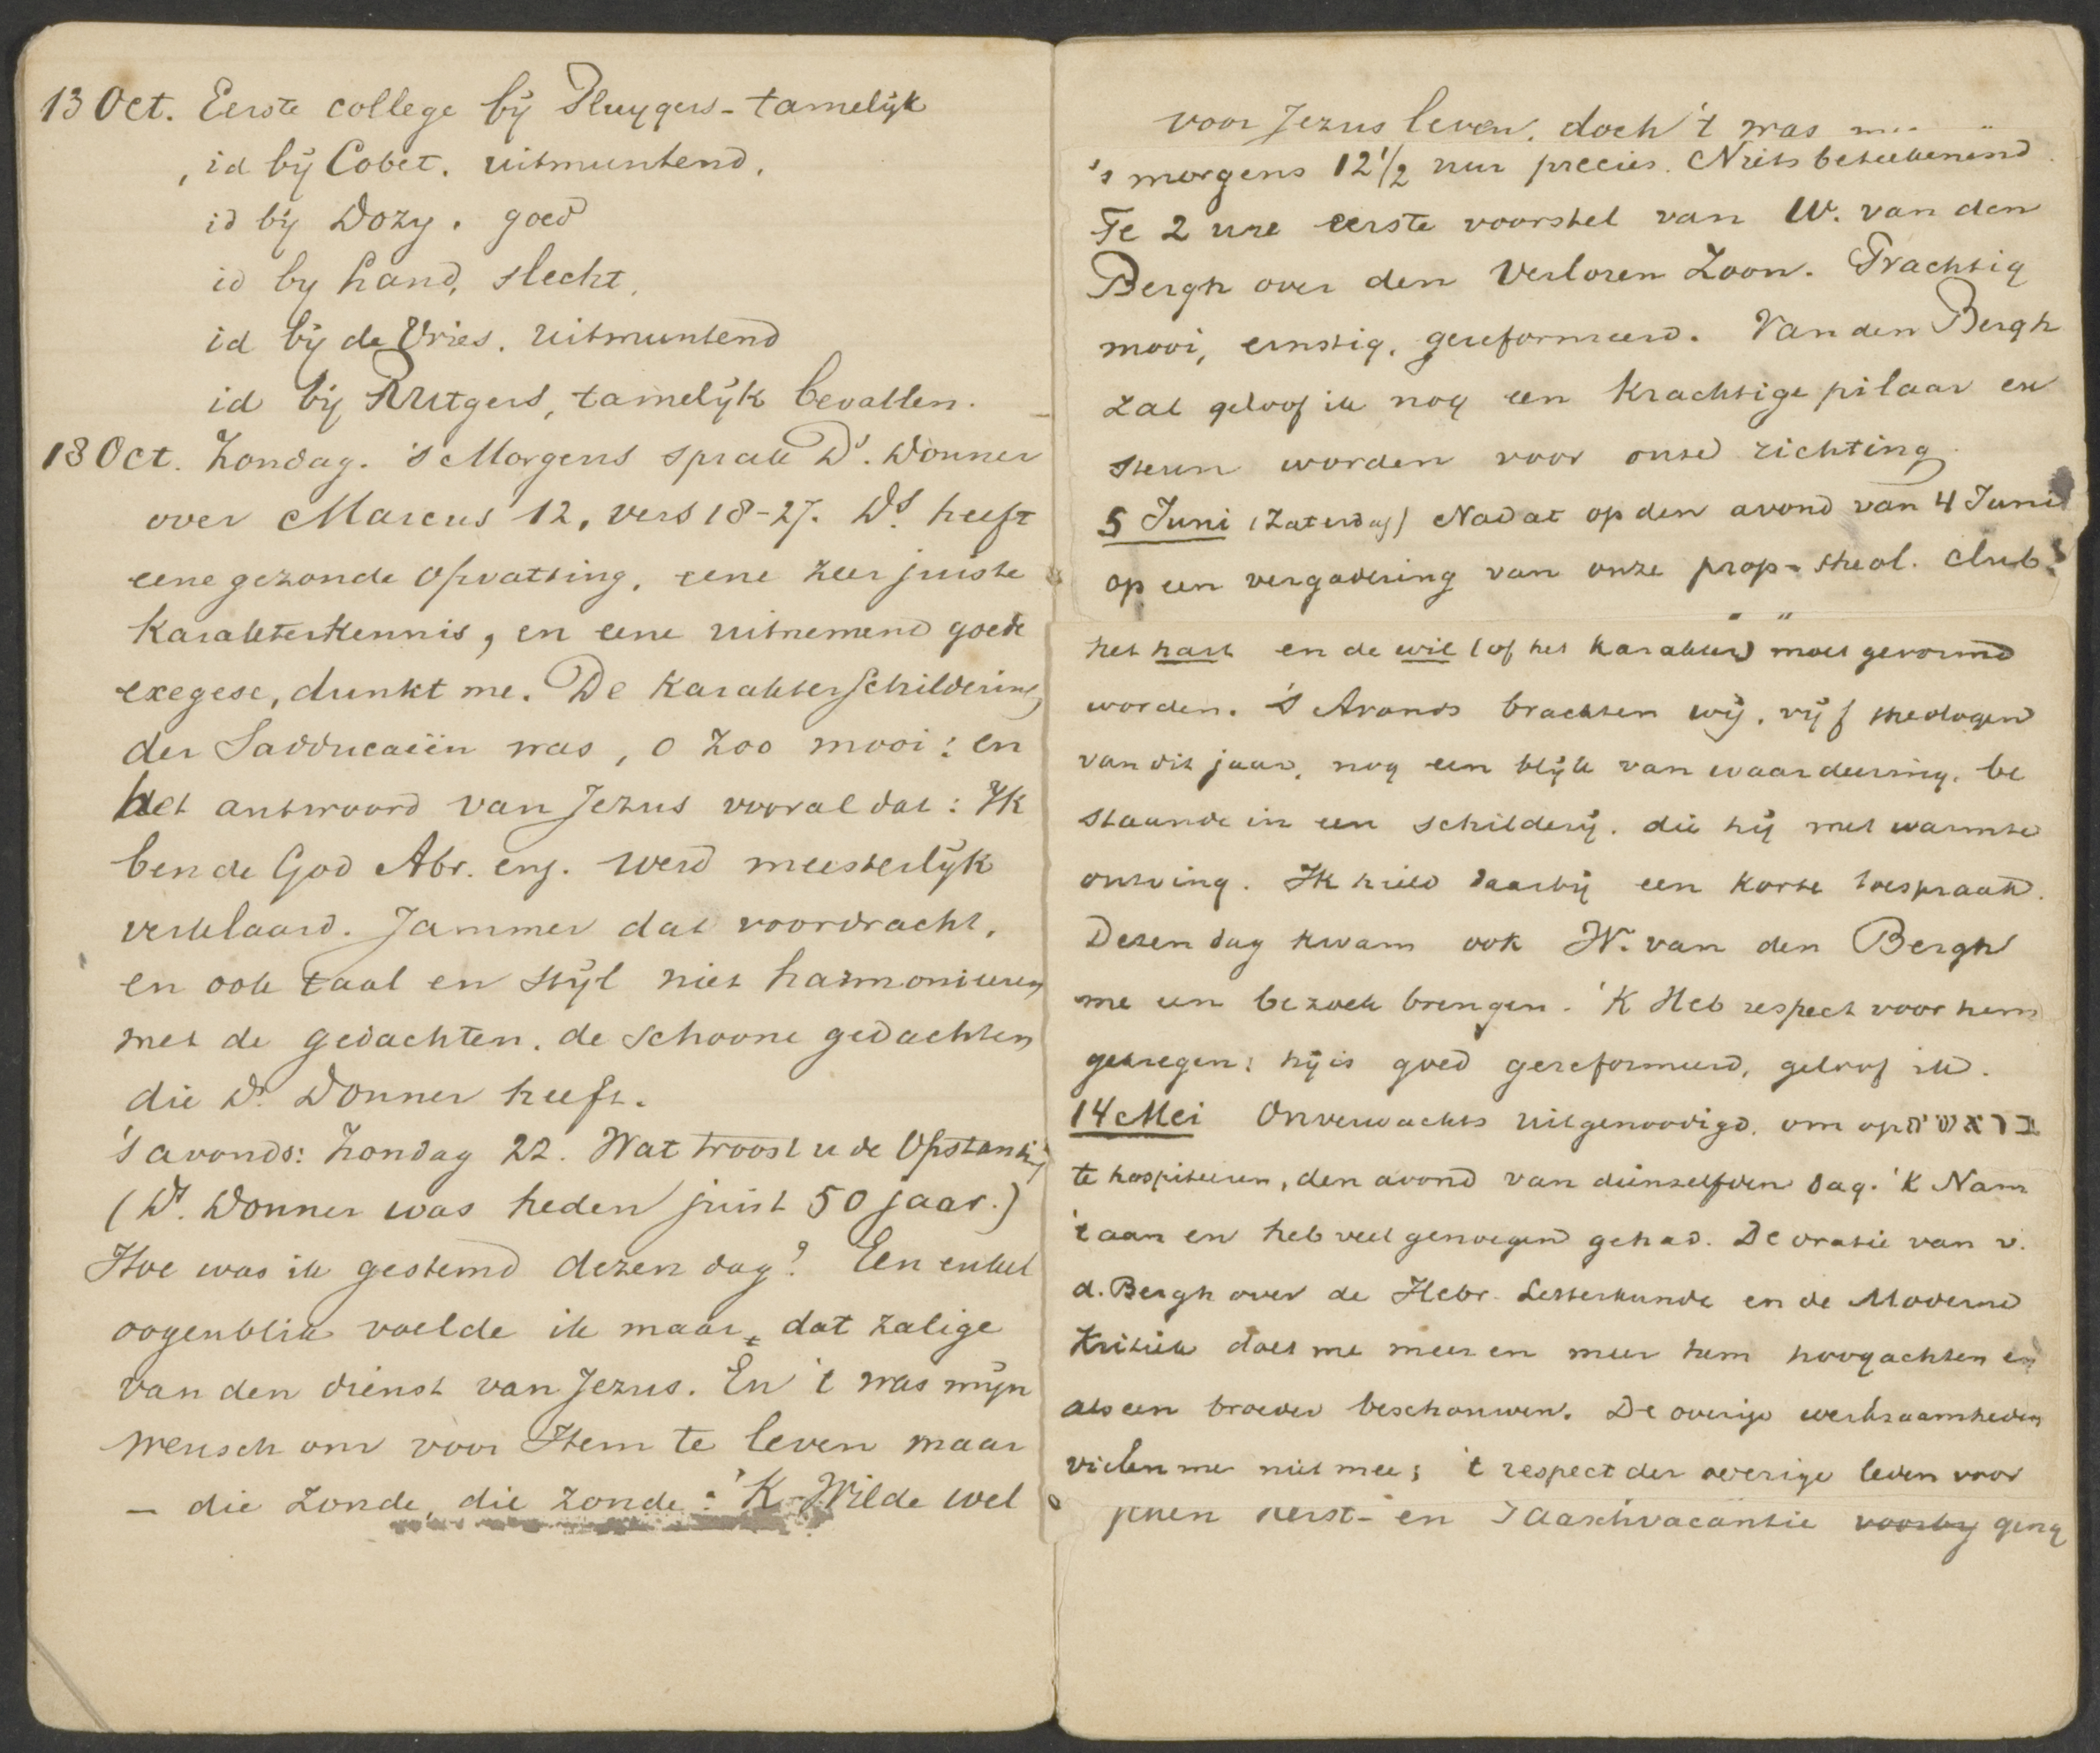 13 Oct. Eerste college bij Pluygers - tamelijk
, id bij Cobet. uitmuntend.
id bij Dozy. goed
id by Land, slecht.
id bij de Vries. uitmuntend
id bij Rutgers, tamelijk bevallen.
18 Oct. Zondag. 's Morgens sprak Ds. Donner
over Marcus 12, vers 18-27. Ds. heeft
eene gezonde opvatting, eene zeer juiste
karakterkennis, en eene uitnemend goede
exegese, dunkt me. De karakterschildering
der Sadducaeën was, o zoo mooi; en
het antwoord van Jezus vooral dat: Ik
ben de God Abr. enz. werd meesterlijk
verklaard. Jammer dat voordracht,
en ook taal en stijl niet harmonieeren
met de gedachten, de schoone gedachten
die Ds. Donner heeft.
's avonds: Zondag 22. Wat troost u de Opstanding
(Ds. Donner was heden juist 50 jaar.)
Hoe was ik gestemd dezen dag? Een enkel
oogenblik voelde ik maar, dat zalige
van den dienst van Jezus. En 't was mijn
wensch om voor Hem te leven maar
— die zonde, die zonde: 'K Wilde wel
voor Jezus leven, doch 't was
's morgens 12 1/2 uur precies. Niets beteekenend.
Te 2 ure eerste voorstel van W. van den
Bergh over den Verloren Zoon. Prachtig
mooi, ernstig, gereformeerd. Van den Bergh
zal geloof ik nog een krachtige pilaar en
steun worden voor onze richting.
5 Juni (Zaterdag) Nadat op den avond van 4 Juni
op een vergadering van onze prop-theol. club
het hart en de wil (of het karakter) moet gevormd
worden. 's Avonds brachten wij, vijf theologen
van dit jaar, nog een blijk van waardeering, be
staande in een schilderij, die hij met warmte
ontving. Ik hield daarbij een korte toespraak.
Dezen dag kwam ook W. van den Bergh
me een bezoek brengen. 'K Heb respect voor hem
gekregen; hij is goed gereformeerd, geloof ik.
14 Mei Onverwachts uitgenoodigd, om op
te hospiteeren, den avond van dienzelfden dag. 'K Nam
't aan en heb veel genoegen gehad. De oratie van v.
d. Bergh over de Hebr. Letterkunde en de Moderne
Kritiek doet me meer en meer hem hoogachten en
als een broeder beschouwen. De overige werkzaamheden
vielen me niet mee; 't respect der overige leden voor
Kerst- en Paaschvacantie voorby ging